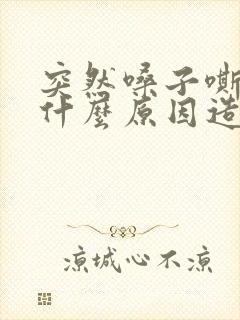 突然嗓子嘶
什麼原因造
涼城心不涼